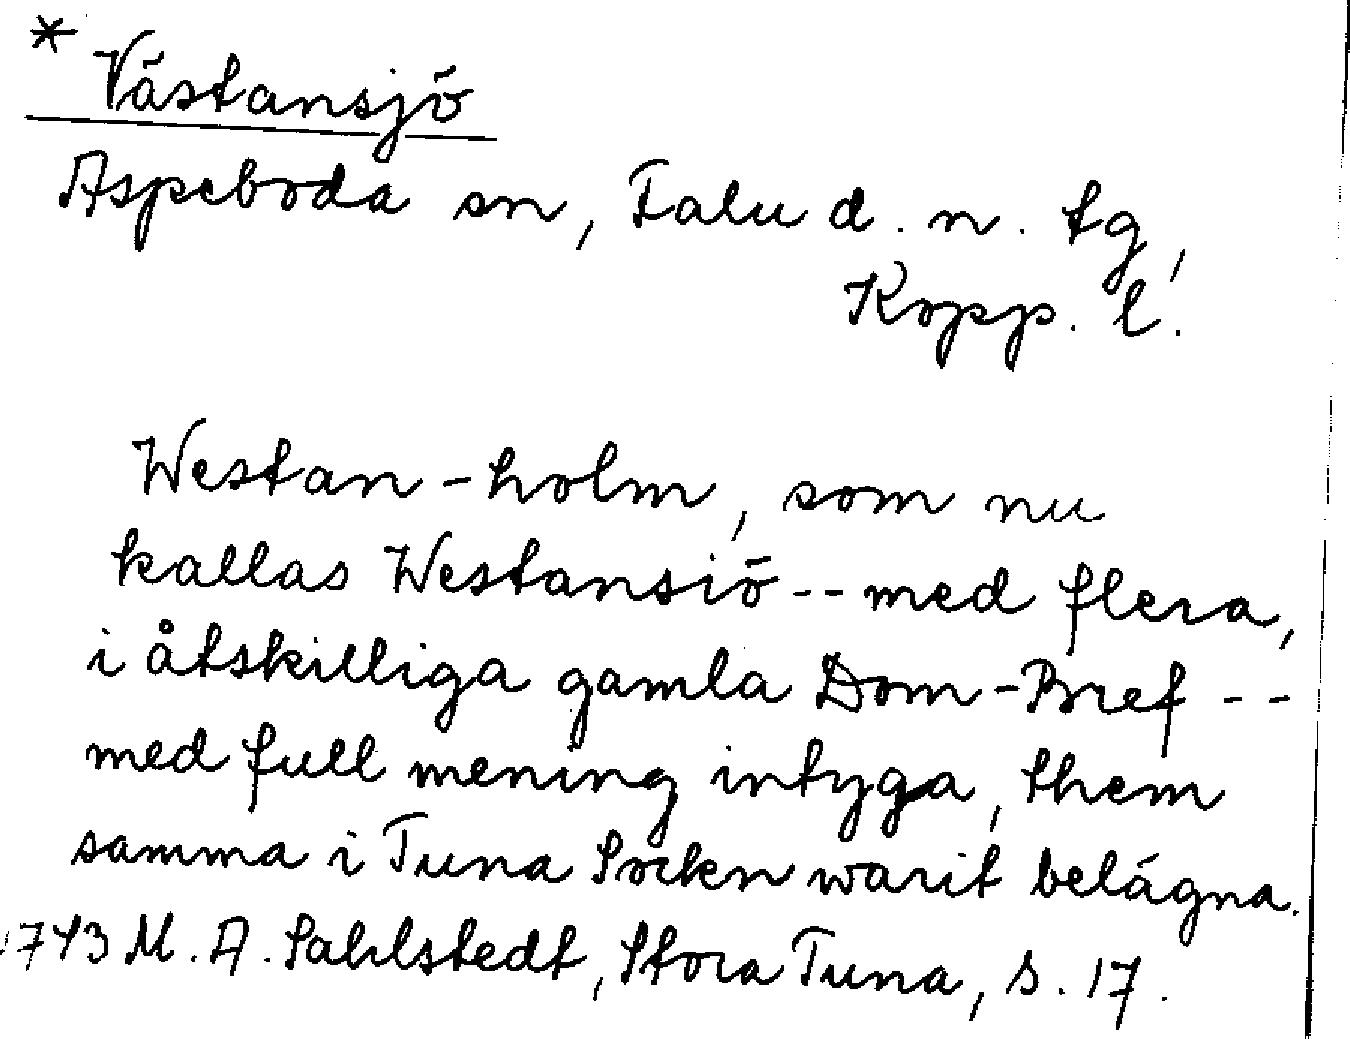 * Västansjö
Aspeboda sn, Falu d. n. tg,
Kopp. l.
Westan-holm, som nu
kallas Westansiö -- med flera,
i åtskilliga gamla Dom-Bref --
med full mening intyga, them
samma i Tuna Sockn warit belägna.
1743 M. A. Sahlstedt, Stora Tuna, s. 17.